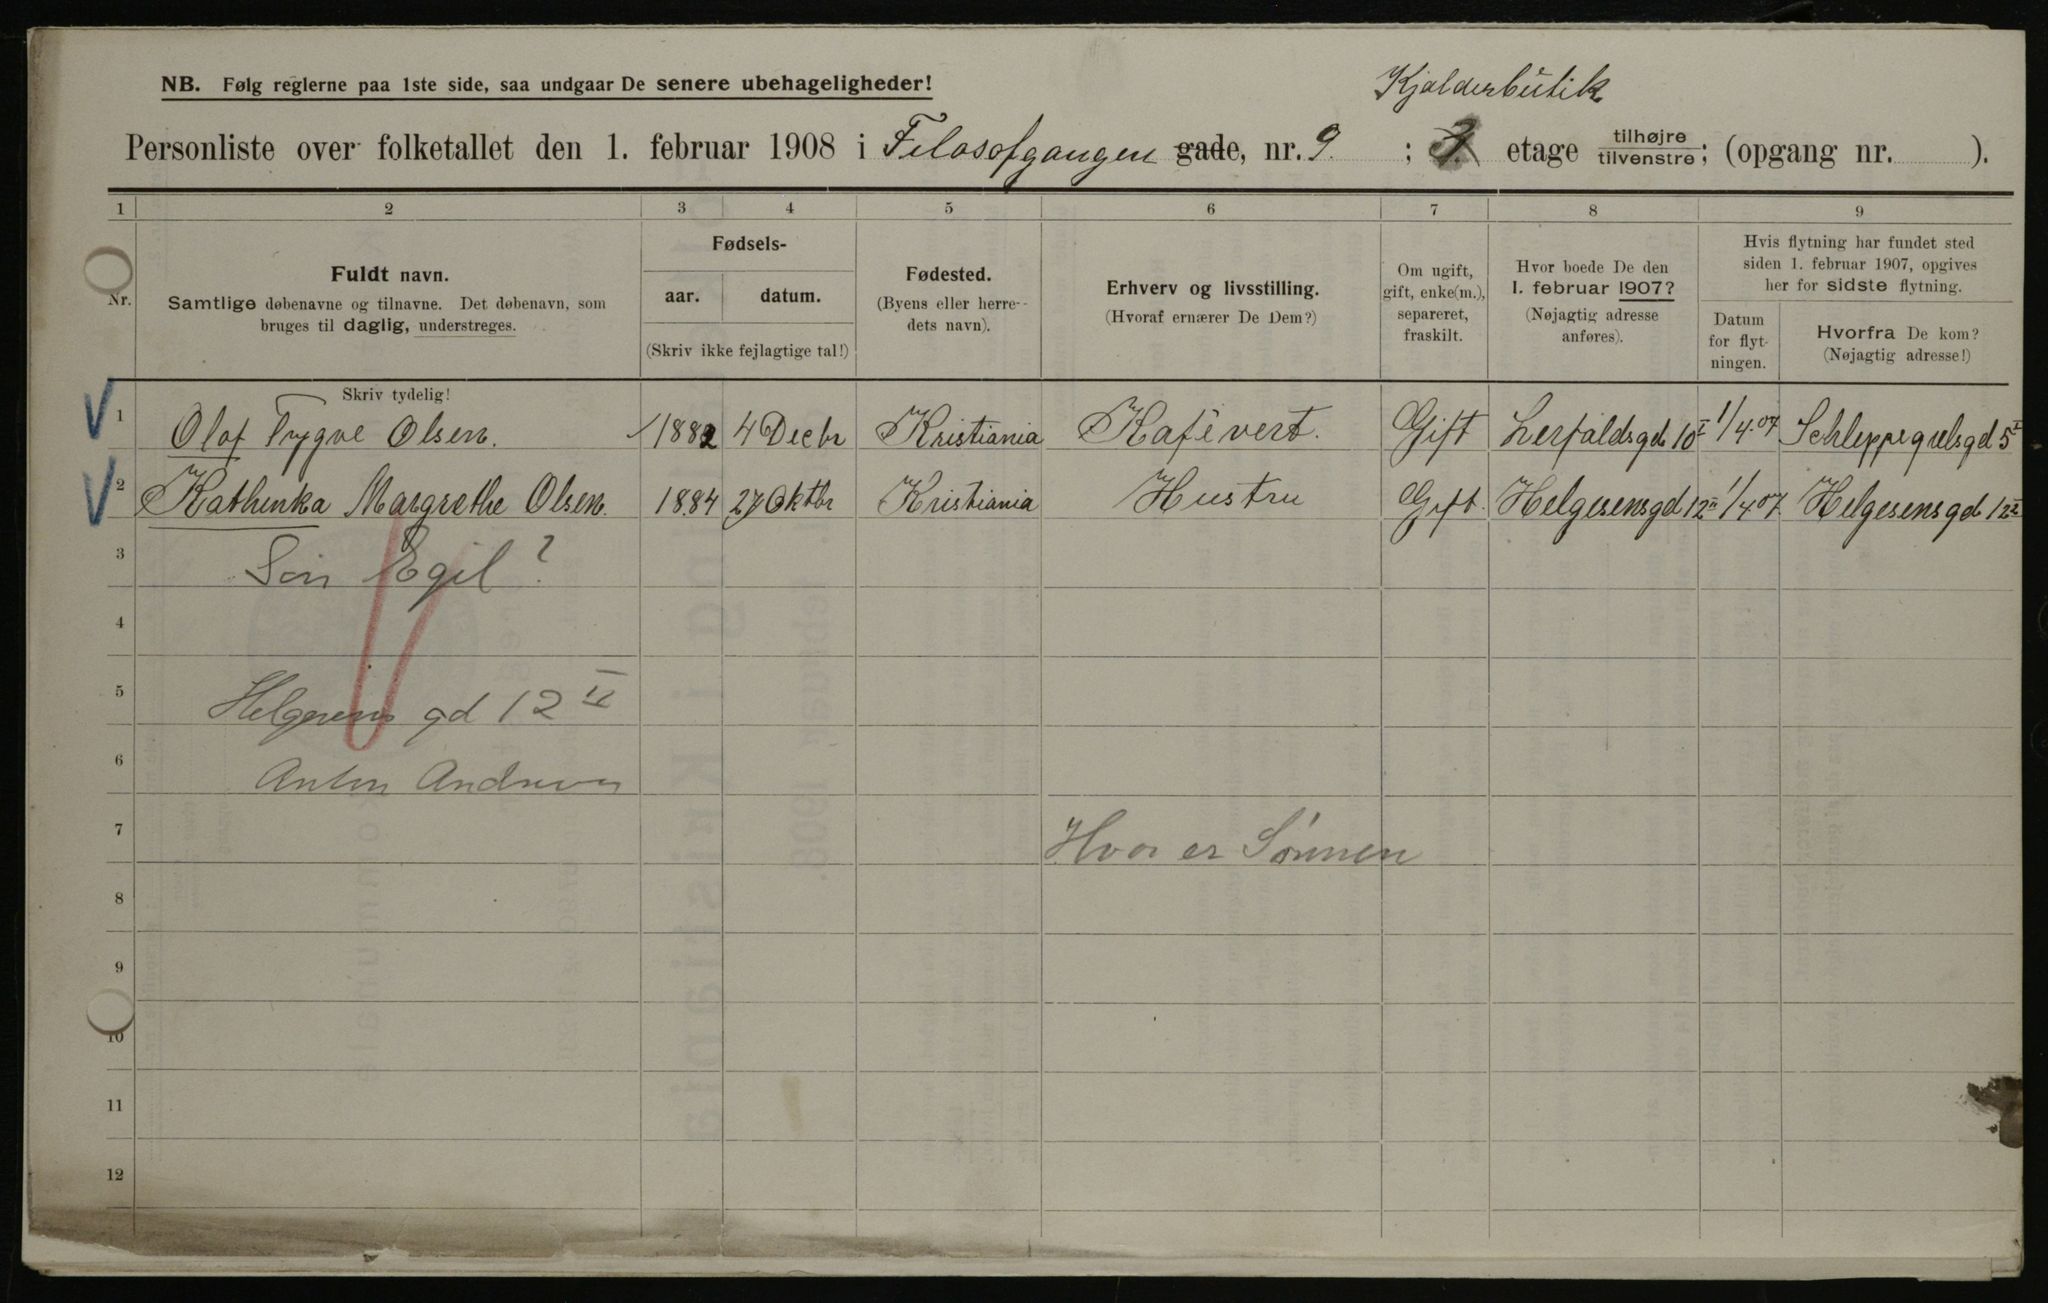 NB. Følg reglerne paa 1ste side, saa undgaar De senere ubehageligheder!
Kjalderbutik
Personliste over folketallet den 1. februar 1908 i Filosofgangen gade, nr. 9. ; etage tilhøjre tilvenstre; (opgang nr. ).
1 2 3 4 5 6 7 8 9
Nr.
Fuldt navn.
Samtlige døbenavne og tilnavne. Det døbenavn, som
bruges til daglig, understreges.
Fødsels-
aar. datum.
(Skriv ikke fejlagtige tal!)
Fødested.
(Byens eller herre-
dets navn).
Erhverv og livsstilling.
(Hvoraf ernærer De Dem?)
Om ugift,
gift, enke(m.),
separeret,
fraskilt.
Hvor boede De den
1. februar 1907?
(Nøjagtig adresse
anføres).
Hvis flytning har fundet sted
siden 1. februar 1907, opgives
her for sidste flytning.
Datum
for flyt-
ningen.
Hvorfra De kom?
(Nøjagtig adresse!)
Skriv tydelig!
1 Olaf Trygve Olsen. 1882 4 Decbr Kristiania Kafévert. Gift Lerfaldsgd 10 I 1/4.07 Schleppegrelsgd 5 I
2 Kathinka Margrethe Olsen. 1884 27 Oktbr Kristiania Hustru Gift. Helgesensgd 12 II 1/4 07. Helgesensgd 12 II
3 Søn Egil?
4
5 Helgesens gd 12 II
6 Anton Andersen
7 Hvor er Sønnen
8
9
10
11
12